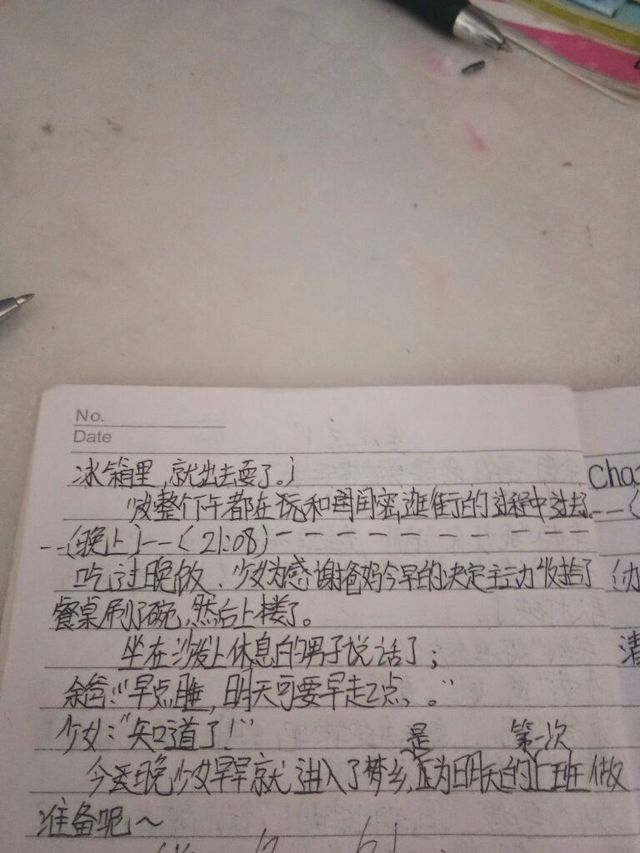 No.
Date
冰箱里,就出去耍了。)
整个下午都在玩和闺密逛街的过程中过去
--(晚上)--(21:08)----------
吃过晚饭、少女为感谢爸妈今早的决定主动收拾了
餐桌刷了碗,然后上楼了。
坐在沙发上休息的男子说话了;
余爸:"早点睡,明天可要早走2点、。"
少女:"知道了!"
是 第一次
今天晚少女早早就进入了梦乡,为明天的上班做
准备呢~
Cha